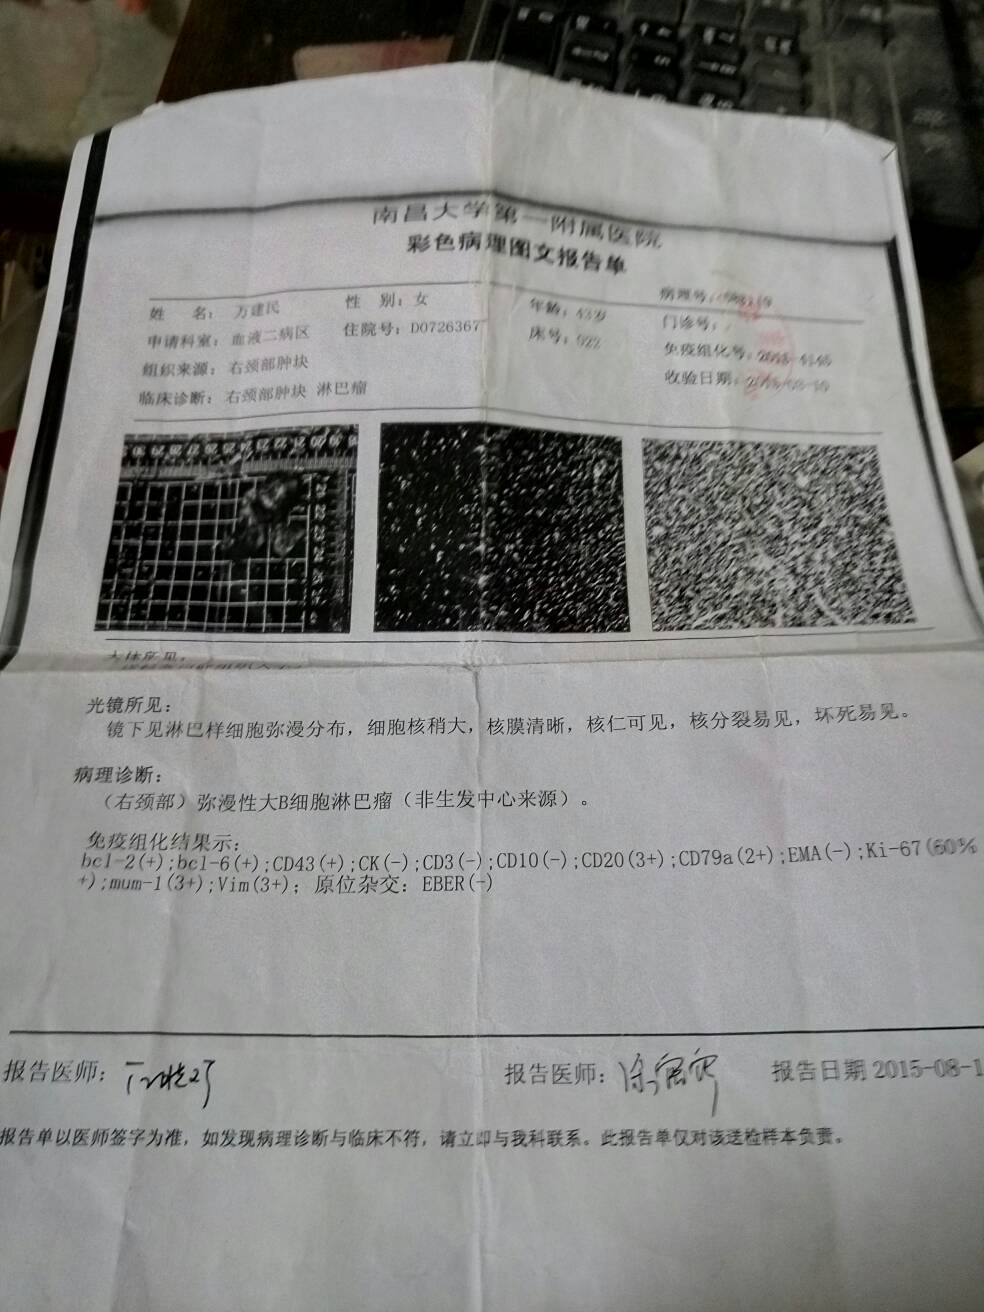 南昌大学第一附属医院
彩色病理图文报告单
姓 名： 万建民 性 别：女 年龄：43岁 病理号：
申请科室：血液二病区 住院号：D0726367 床号：022 门诊号：
组织来源：右颈部肿块 免疫组化号：
临床诊断：右颈部肿块 淋巴瘤 收验日期：
大体所见：
光镜所见：
镜下见淋巴样细胞弥漫分布，细胞核稍大，核膜清晰，核仁可见，核分裂易见，坏死易见。
病理诊断：
（右颈部）弥漫性大B细胞淋巴瘤（非生发中心来源）。
免疫组化结果示：
bcl-2(+);bcl-6(+);CD43(+);CK(-);CD3(-);CD10(-);CD20(3+);CD79a(2+);EMA(-);Ki-67(60%
+);mum-1(3+);Vim(3+)；原位杂交：EBER(-)
报告医师： 报告医师： 报告日期 2015-08-1
报告单以医师签字为准，如发现病理诊断与临床不符，请立即与我科联系。此报告单仅对该送检样本负责。